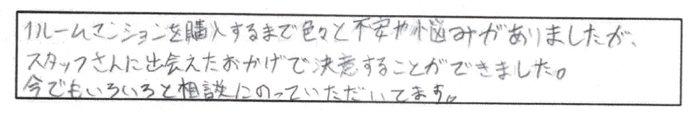 1ルームマンションを購入するまで色々と不安や悩みがありましたが、
スタッフさんに出会えたおかげで決意することができました。
今でもいろいろと相談にのっていただいてます。